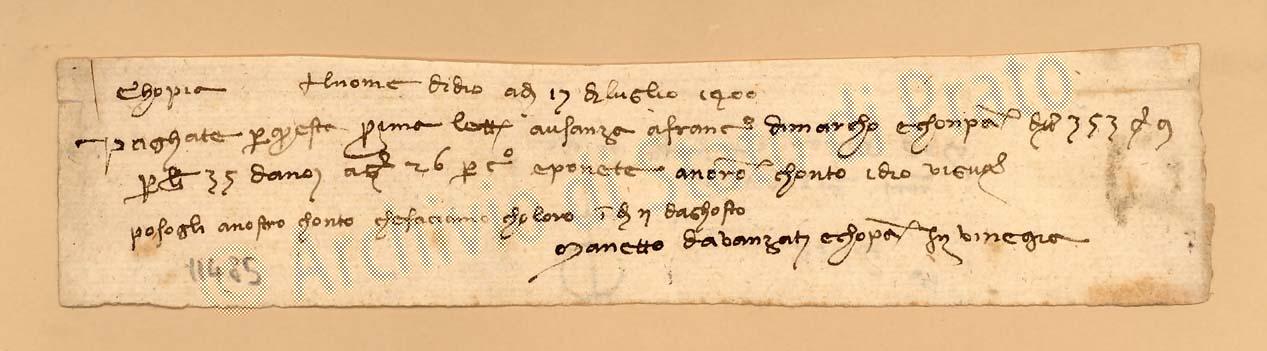 Chopia ✝ Al nome di dio adj 17 di luglio 1400
Paghate per questa prima lettera a usanza a Francº di Marcho e chonpª 353 9
per 35 da noi 26 per cº e ponete a nostro chonto idio vi ghuardi
posogli a nostro chonto che faciamo choloro dì 11 d'aghosto
Manetto Davanzati e chopª in Vinegia
11485
© Archivio di Stato di Prato